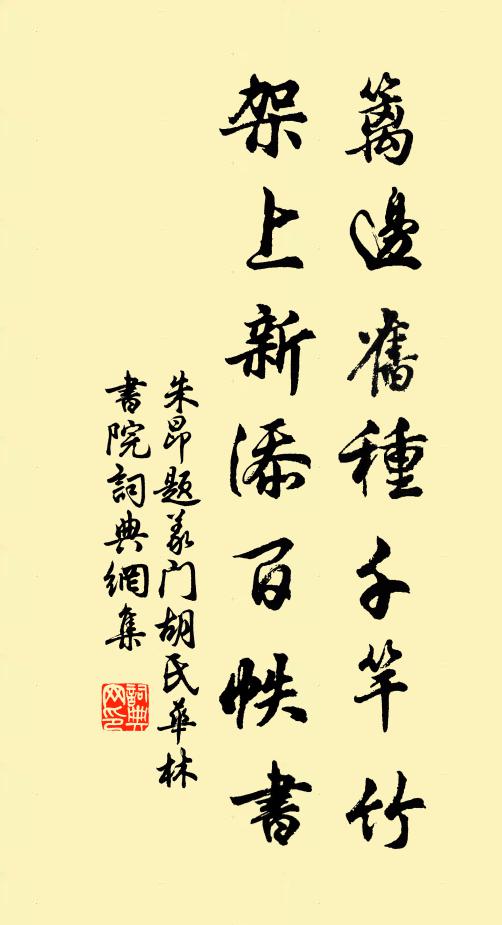 籬邊舊種千竿竹
架上新添百帙書
朱昂題義门胡氏華林
書院詞典網集
詞典
网印